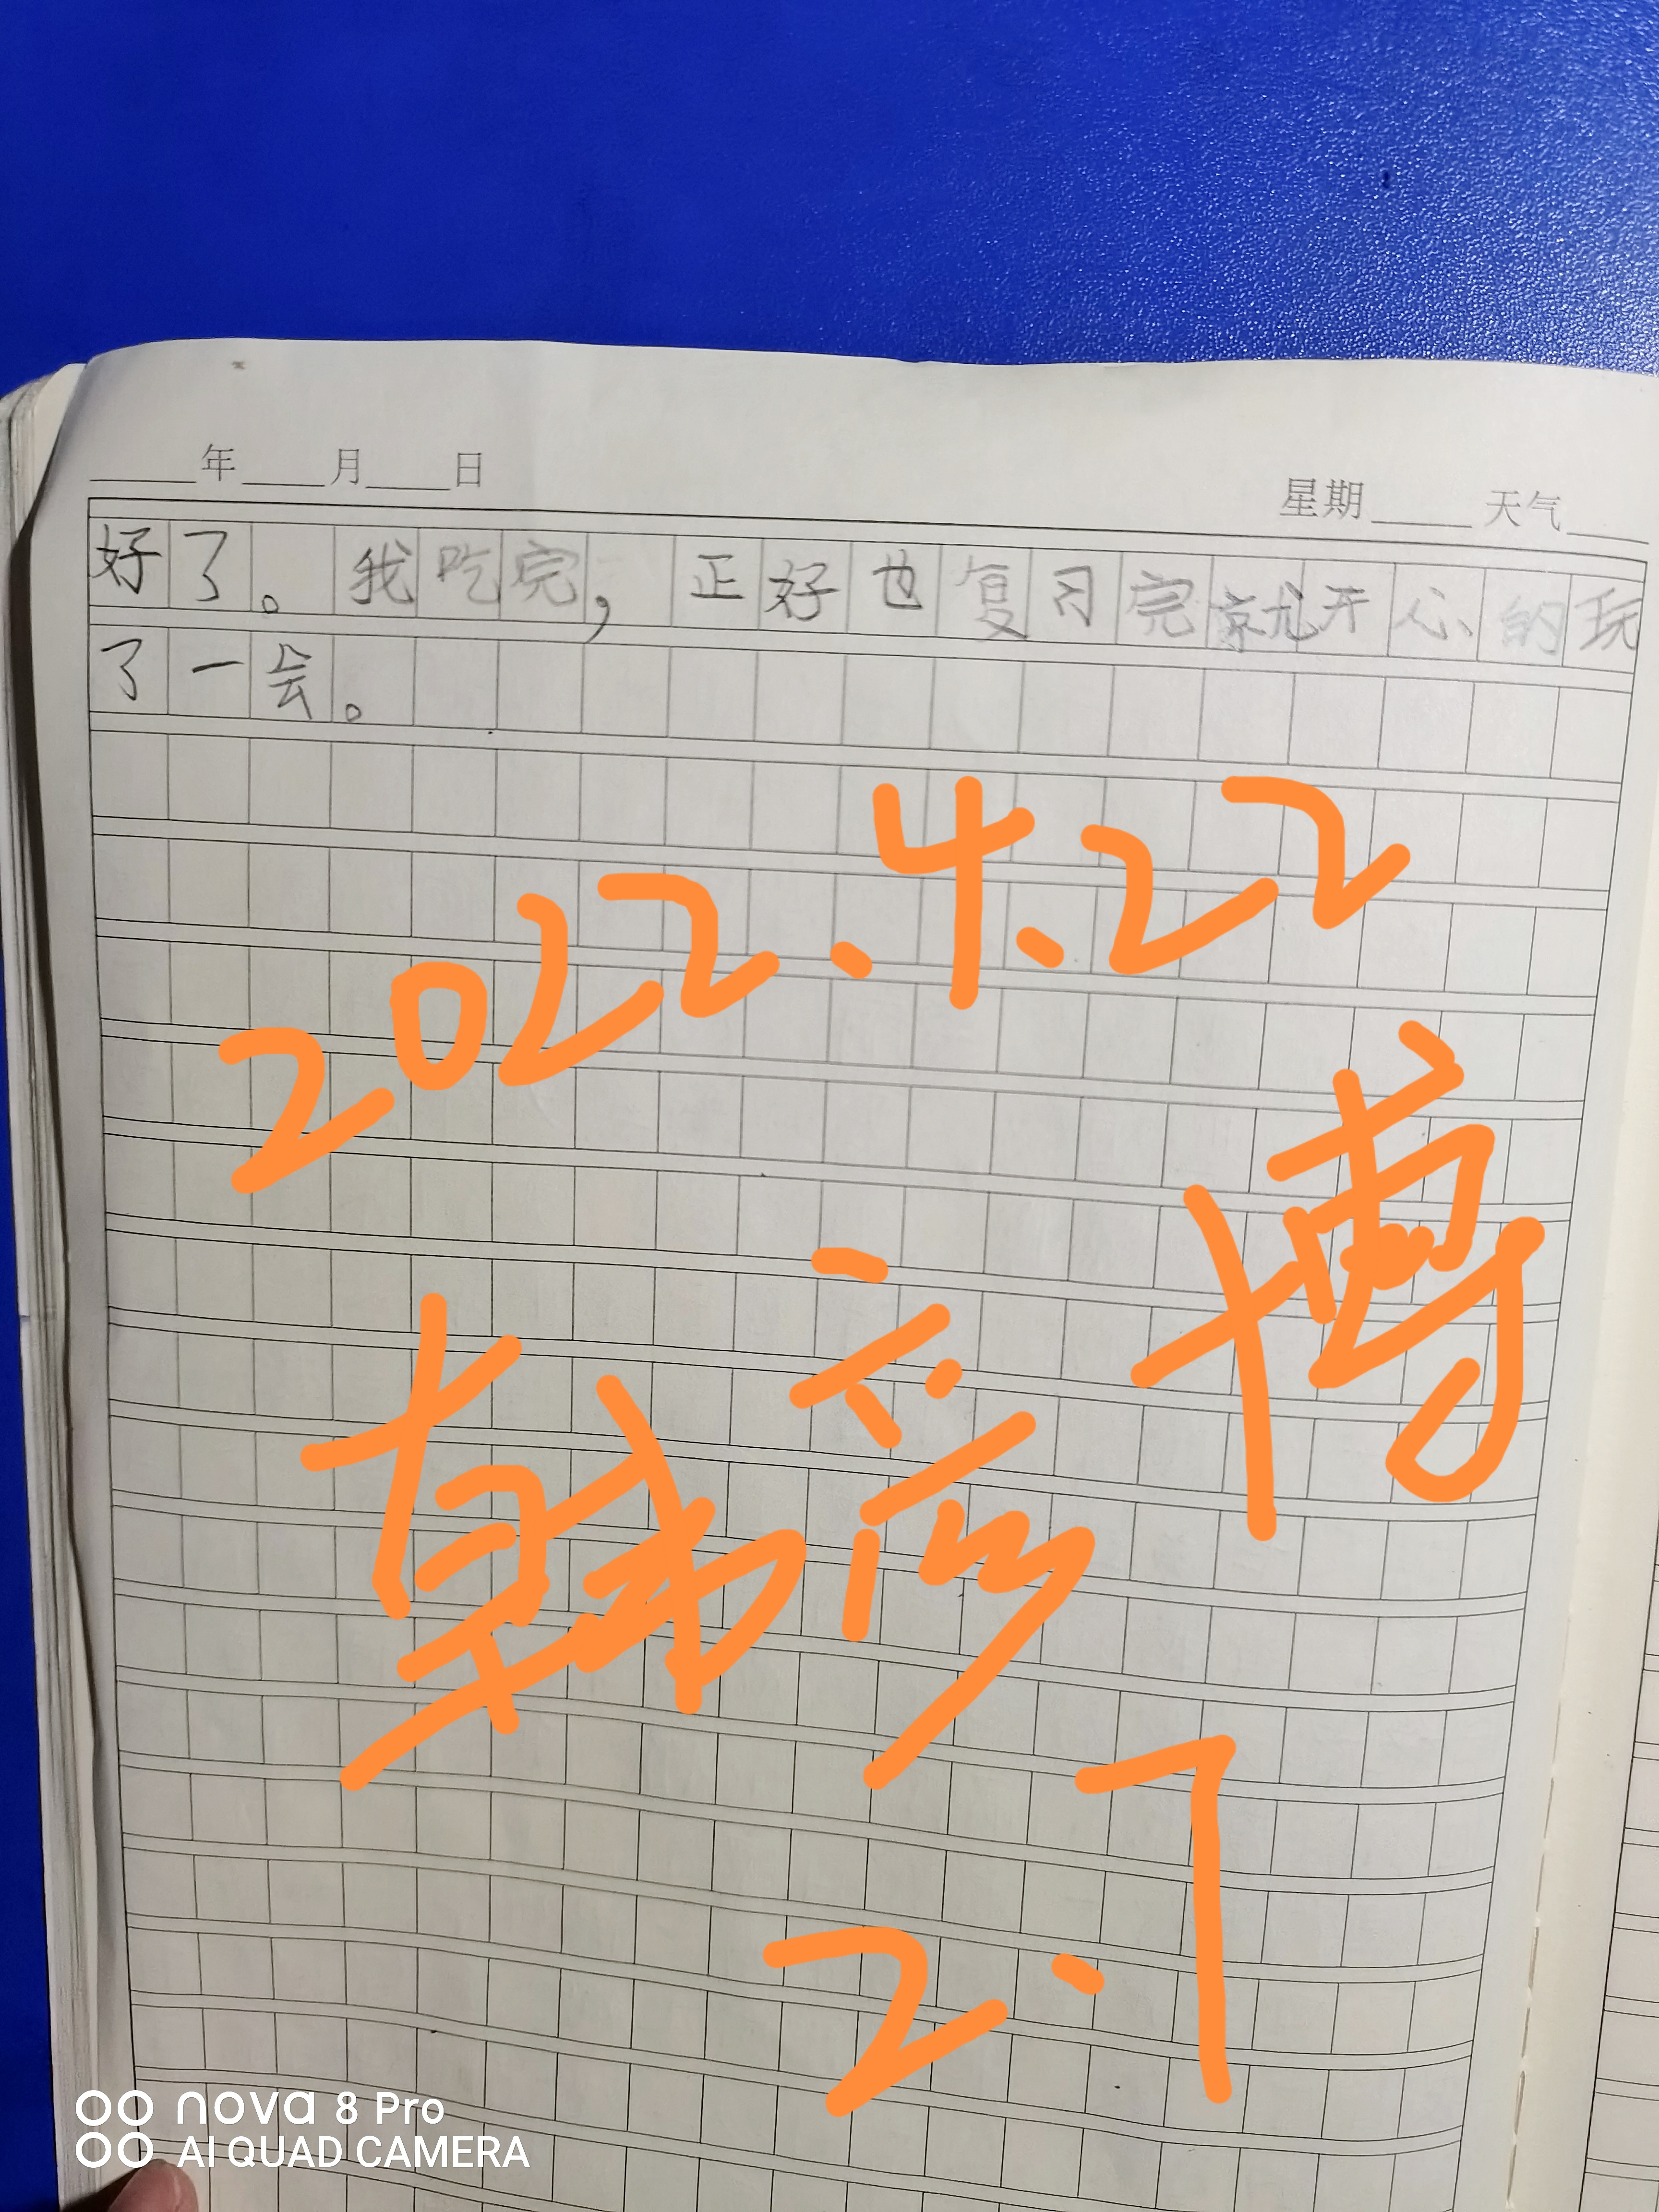 年 月 日 星期 天气
好了。我吃完,正好也复习完就开心的玩
了一会。
2022.4.22
韩彦博
2.7
nova 8 Pro
AI QUAD CAMERA